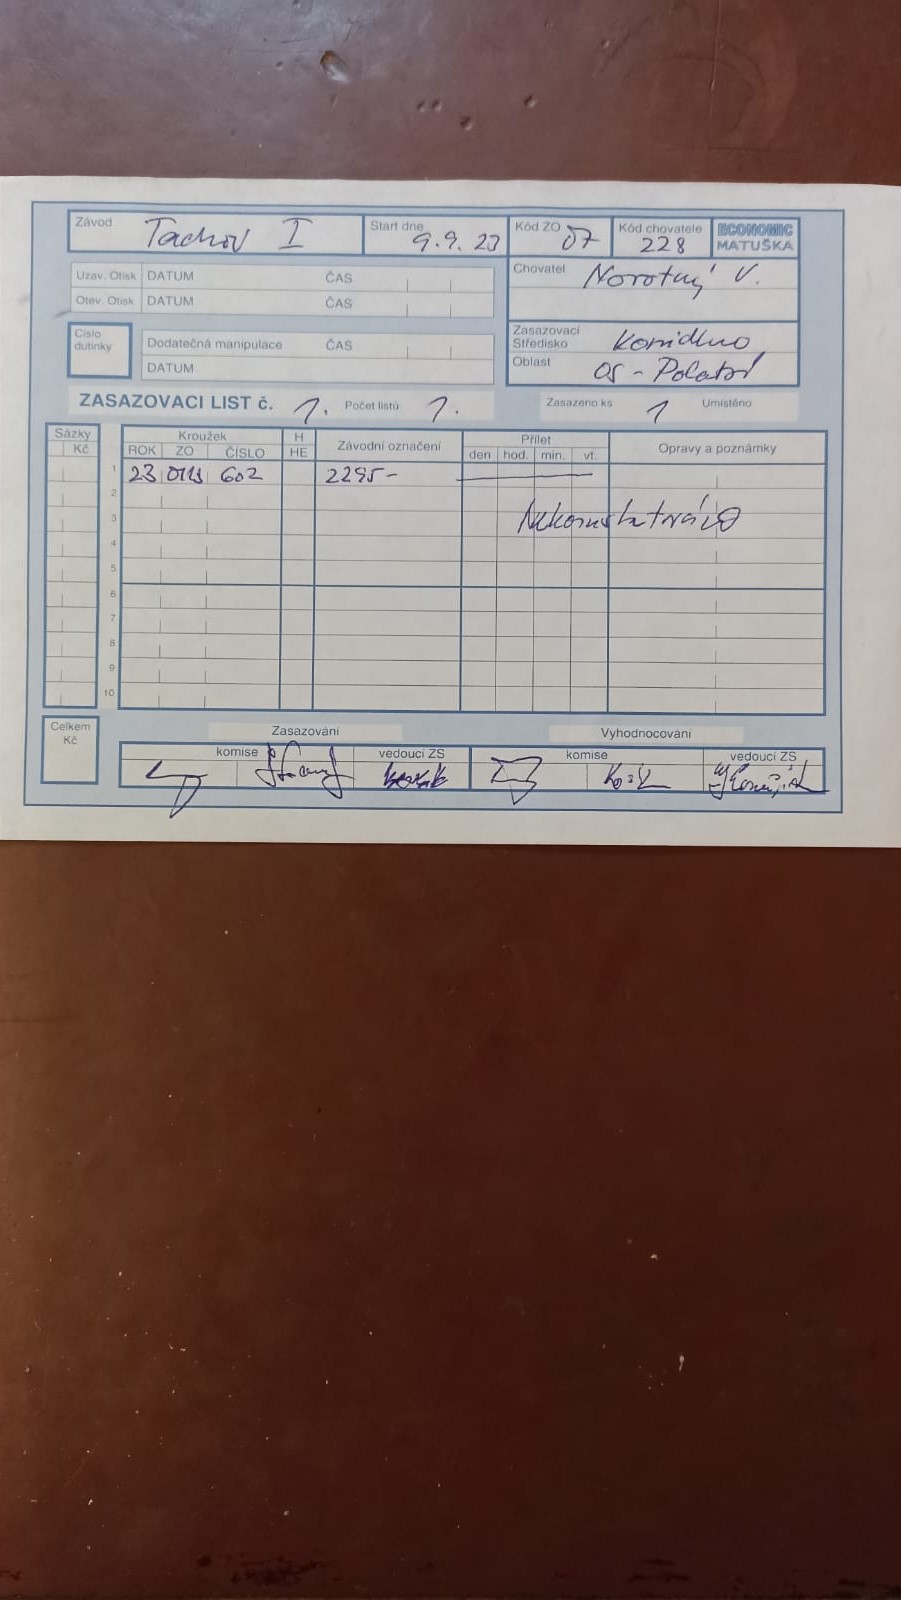 Závod Tachov I Start dne 9.9.23 Kód ZO 07 Kód chovatele 228 ECONOMIC MATUŠKA
Uzav. Otisk DATUM ČAS
Otev. Otisk DATUM ČAS
Chovatel Novotný V.
Číslo dutinky
Dodatečná manipulace ČAS
DATUM
Zasazovací Středisko Kopidlno
Oblast 05 - Polabí
ZASAZOVACI LIST č. 1. Počet listů 1. Zasazeno ks 1 Umístěno
Sázky Kč
Kroužek H HE Závodní označení Přílet Opravy a poznámky
ROK ZO ČÍSLO den hod. min. vt.
1 23 602 2295-
2
3
4
5
6
7
8
9
10
Celkem Kč
Zasazování Vyhodnocování
komise vedoucí ZS komise vedoucí ZS